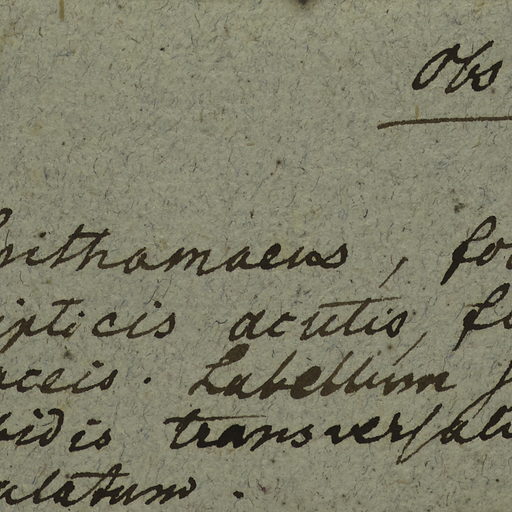 Obs
spithamaeus, fo
ipticis acutis, fl
aceis. Labellum
bidis transversali
ulatum.